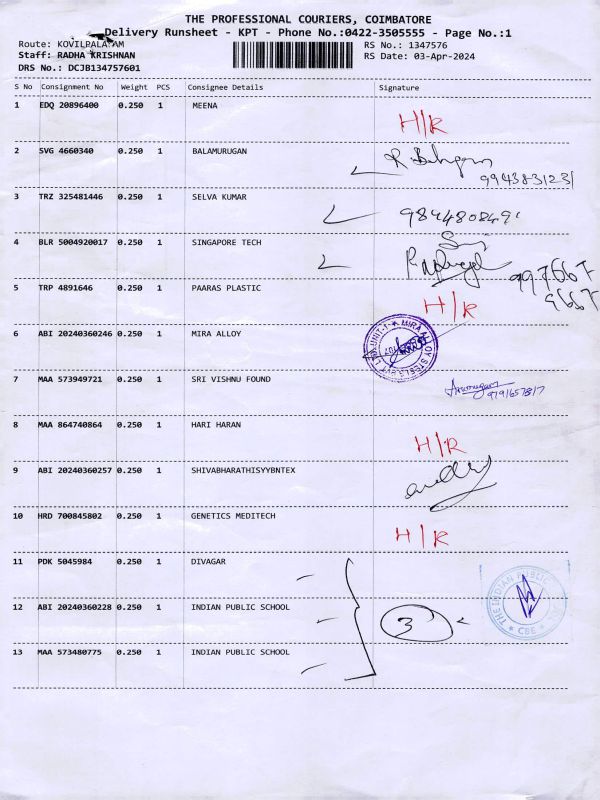 THE PROFESSIONAL COURIERS, COIMBATORE
Delivery Runsheet - KPT - Phone No.:0422-3505555 - Page No.:1
Route: KOVILPALAYAM
RS No.: 1347576
Staff: RADHA KRISHNAN
RS Date: 03-Apr-2024
DRS No.: DCJB134757601
S No Consignment No Weight PCS Consignee Details Signature
1 EDQ 20896400 0.250 1 MEENA
H/R
2 SVG 4660340 0.250 1 BALAMURUGAN
9943831231
3 TRZ 325481446 0.250 1 SELVA KUMAR
4 BLR 5004920017 0.250 1 SINGAPORE TECH
5 TRP 4891646 0.250 1 PAARAS PLASTIC
H/R
6 ABI 20240360246 0.250 1 MIRA ALLOY
MIRA ALLOY STEELS PVT LTD. UNIT-1
7 MAA 573949721 0.250 1 SRI VISHNU FOUND
8 MAA 864740864 0.250 1 HARI HARAN
H/R
9 ABI 20240360257 0.250 1 SHIVABHARATHISYYBNTEX
10 HRD 700845802 0.250 1 GENETICS MEDITECH
H/R
11 PDK 5045984 0.250 1 DIVAGAR
12 ABI 20240360228 0.250 1 INDIAN PUBLIC SCHOOL
3
THE INDIAN PUBLIC
CBE
13 MAA 573480775 0.250 1 INDIAN PUBLIC SCHOOL